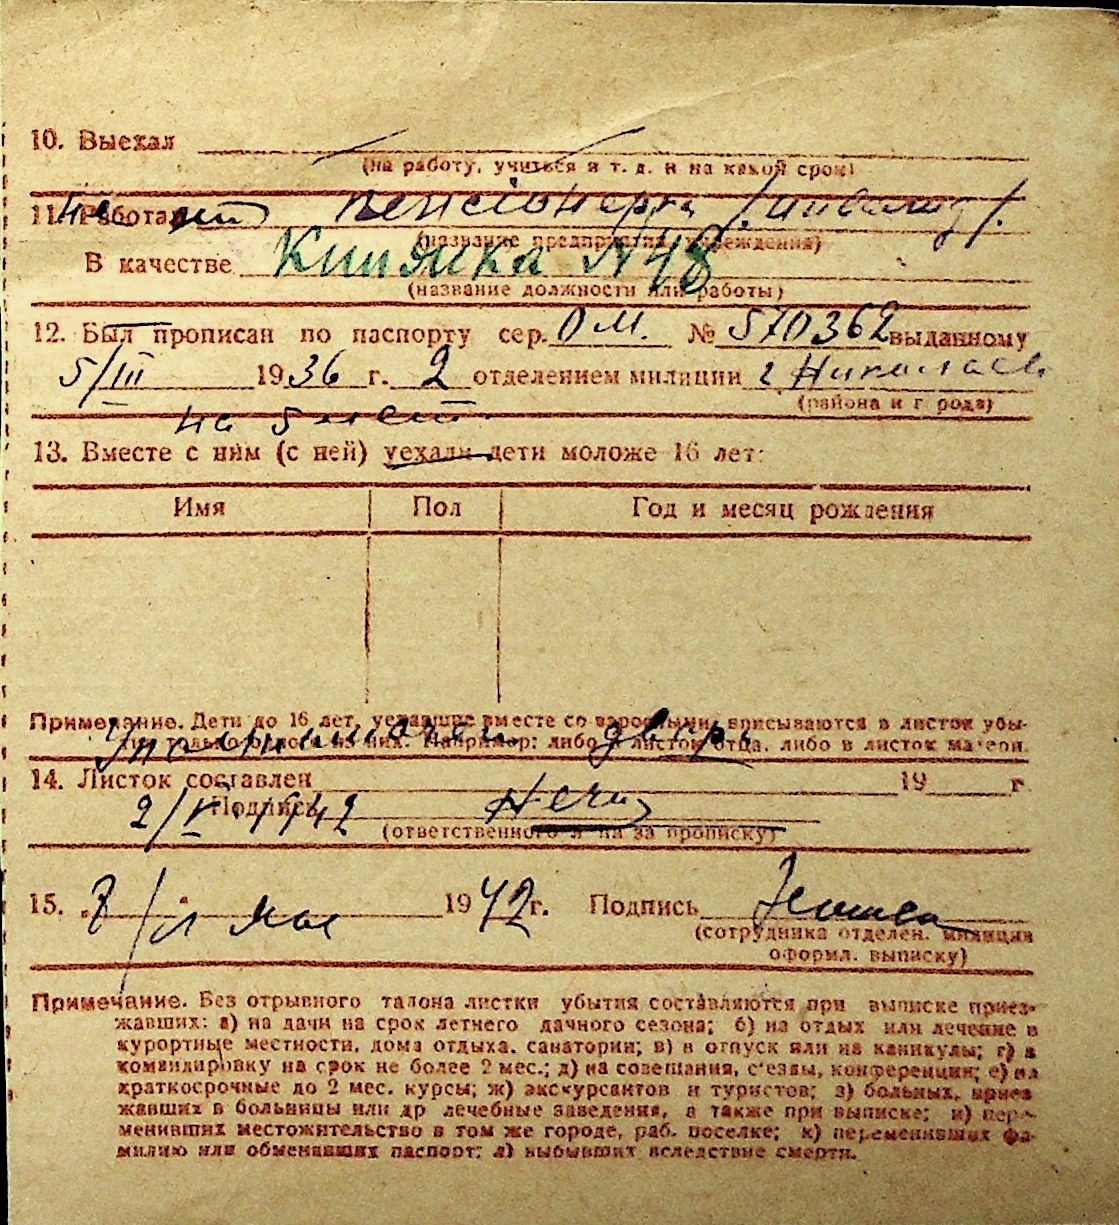 10. Выехал
(на работу, учиться и т. д. и на какой срок)
11. Работал нет пенсионерка /инвалид/.
(название предприятия, учреждения)
В качестве Книжка №48
(название должности или работы)
12. Был прописан по паспорту сер. ОМ. № 570362 выданному
5/III 1936 г. 2 отделением милиции г. Николаев
(района и города)
на 5 лет.
13. Вместе с ним (с ней) уехали дети моложе 16 лет:
Имя Пол Год и месяц рождения
Примечание. Дети до 16 лет, уехавшие вместе со взрослыми, вписываются в листок убы-
тия только одного из них. Например: либо в листок отца, либо в листок матери.
14. Листок составлен 19 г.
2/V 1942 Подпись
(ответственного л-ца за прописку)
15. 8/ мая 1942 г. Подпись
(сотрудника отделен. милиции
оформл. выписку)
Примечание. Без отрывного талона листки убытия составляются при выписке приез-
жавших: а) на дачи на срок летнего дачного сезона; б) на отдых или лечение в
курортные местности, дома отдыха, санатории; в) в отпуск или на каникулы; г) в
командировку на срок не более 2 мес.; д) на совещания, с'езды, конференции; е) на
краткосрочные до 2 мес. курсы; ж) экскурсантов и туристов; з) больных, приез
жавших в больницы или др лечебные заведения, а также при выписке; и) пере-
менивших местожительство в том же городе, раб. поселке; к) переменивших фа-
милию или обменявших паспорт; л) выбывших вследствие смерти.